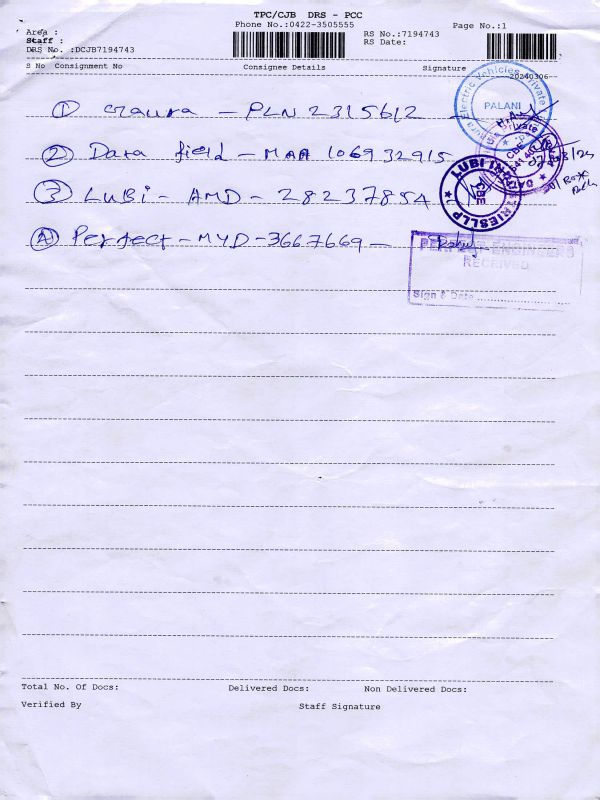 TPC/CJB DRS - PCC
Phone No.:0422-3505555
Page No.:1
Area :
RS No.:7194743
Staff :
RS Date:
DRS No. :DCJB7194743
S No Consignment No Consignee Details Signature
20240306
① Gaura - PLN 2315612
② Data field - MAA 106932915
③ LUBI - AMD - 28237854
④ Perfect - MYD - 3667669 -
Electric Vehicles Private
PALANI
LUBI INDUSTRIES LLP
CBE
PERFECT ENGINEERS
RECEIVED
Sign & Date
Total No. Of Docs: Delivered Docs: Non Delivered Docs:
Verified By Staff Signature